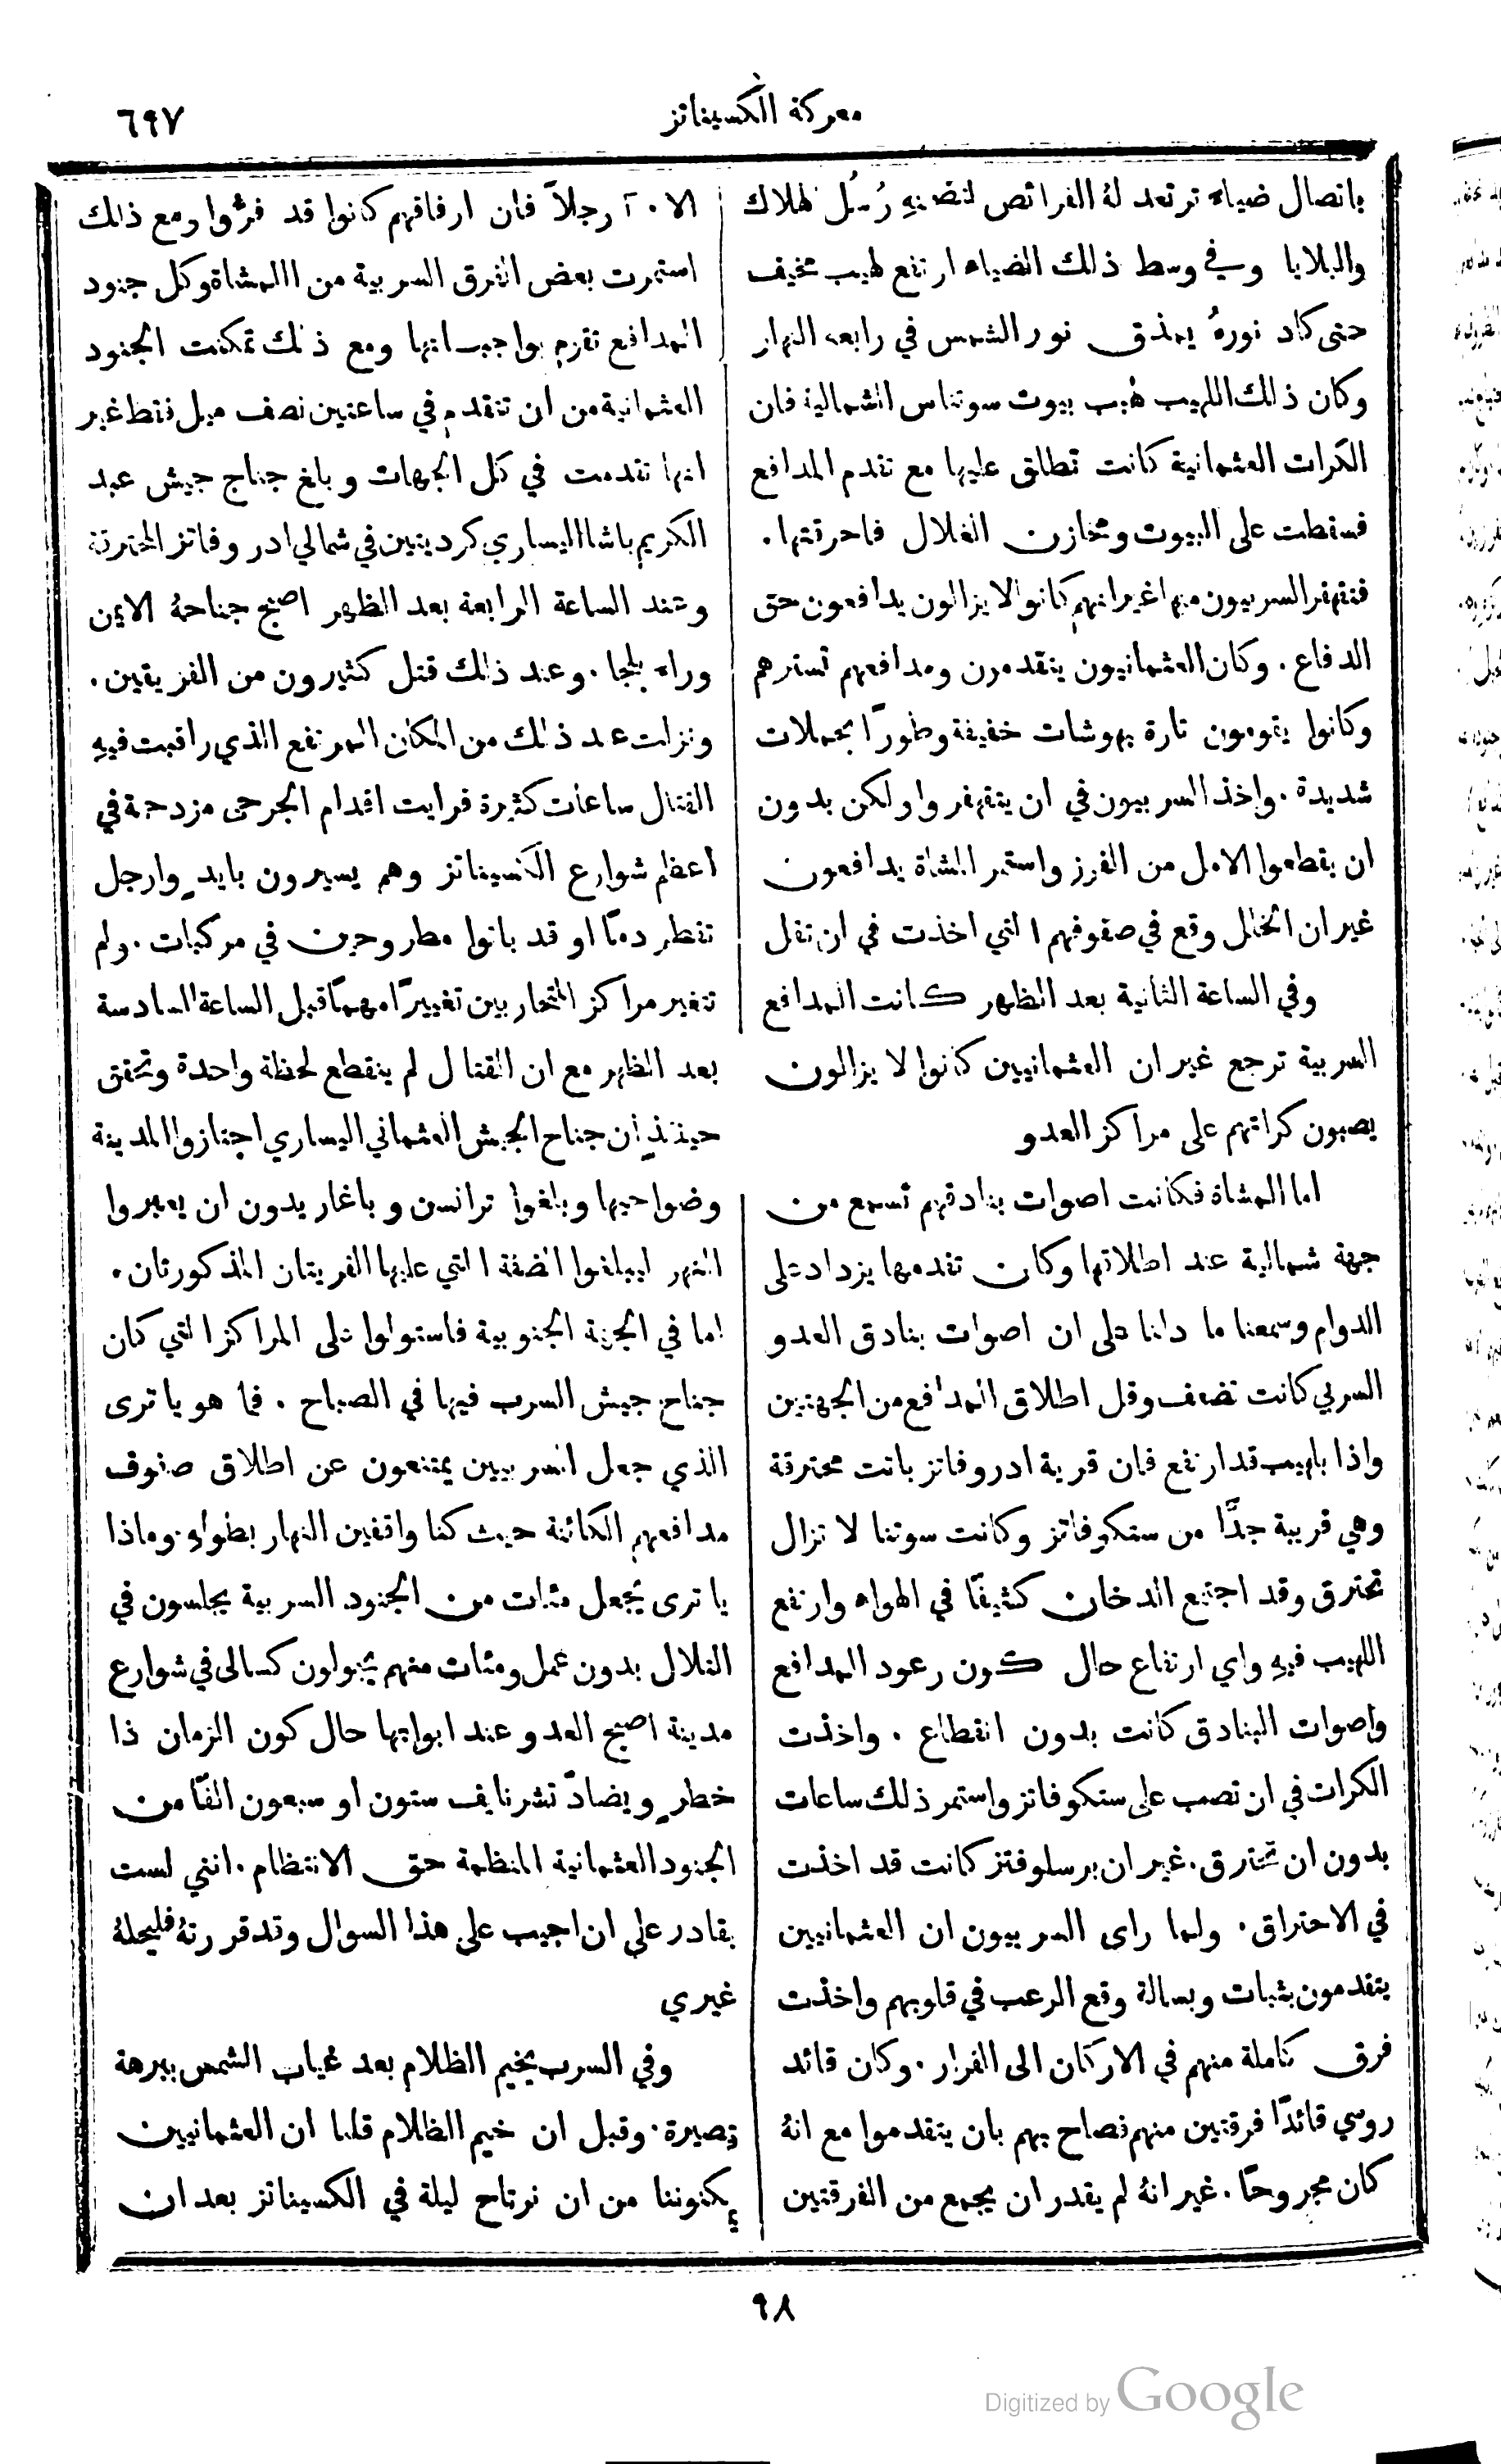 معركة الكسيناتز
٦٩٧
باتصال ضياء ترتعد لهُ الفرائص لتضمنهِ رُسُل الهلاك
والبلايا وفي وسط ذلك الضياء ارتفع لهيب مخيف
حتى كاد نورهُ يمذق نور الشمس في رابعة النهار
وكان ذلك اللهيب لهيب بيوت سوتناس الشمالية فان
الكرات العثمانية كانت تطلق عليها مع تقدم المدافع
فسقطت على البيوت ومخازن الغلال فاحرقتها.
فتقهقر السربيون منها غير انهم كانوا لا يزالون يدافعون حق
الدفاع. وكان العثمانيون يتقدمون ومدافعهم تسترهم
وكانوا يقومون تارة بهوشات خفيفة وطورًا بحملات
شديدة. واخذ السربيون في ان يتقهقروا ولكن بدون
ان يقطعوا الامل من الفوز واستمر المشاة يدافعون
غير ان الخلل وقع في صفوفهم التي اخذت في ان تقل
وفي الساعة الثانية بعد الظهر كانت المدافع
السربية ترجع غير ان العثمانيين كانوا لا يزالون
يصبون كراتهم على مراكز العدو
اما المشاة فكانت اصوات بنادقهم تسمع من
جهة شمالية عند اطلاقها وكان تقدمها يزداد على
الدوام وسمعنا ما دلنا على ان اصوات بنادق العدو
السربي كانت تضعف وقل اطلاق المدافع من الجهتين
واذا بلهيب قد ارتفع فان قرية ادروفاتز باتت محترقة
وهي قريبة جدًّا من ستكوفاتز وكانت سوتنا لا تزال
تحترق وقد اجتمع الدخان كثيفًا في الهواء وارتفع
اللهيب فيهِ واي ارتفاع حال كون رعود المدافع
واصوات البنادق كانت بدون انقطاع. واخذت
الكرات في ان تصب على ستكوفاتز واستمر ذلك ساعات
بدون ان تحترق. غير ان برسلوفتز كانت قد اخذت
في الاحتراق. ولما راى السربيون ان العثمانيين
يتقدمون بثبات وبسالة وقع الرعب في قلوبهم واخذت
فرق كاملة منهم في الاركان الى الفرار. وكان قائد
روسي قائدًا فرقتين منهم فصاح بهم بان يتقدموا مع انهُ
كان مجروحًا. غير انهُ لم يقدر ان يجمع من الفرقتين
الا ٢٠ رجلاً فان ارفاقهم كانوا قد فرُّوا ومع ذلك
استمرت بعض الفرق السربية من المشاة وكل جنود
المدافع تقوم بواجباتها ومع ذلك تمكنت الجنود
العثمانية من ان تتقدم في ساعتين نصف ميل فقط غير
انها تقدمت في كل الجهات وبلغ جناج جيش عبد
الكريم باشا اليساري كرديتين في شمالي ادروفاتز المحترقة
وعند الساعة الرابعة بعد الظهر اصبح جناحهُ الايمن
وراء بلجا. وعند ذلك قتل كثيرون من الفريقين.
ونزلت عند ذلك من المكان المرتفع الذي راقبت فيهِ
القتال ساعات كثيرة فرايت اقدام الجرحى مزدحمة في
اعظم شوارع الكسيناتز وهم يسيرون بايدٍ وارجل
تقطر دمًا او قد باتوا مطروحين في مركبات. ولم
تتغير مراكز المتحاربين تغييرًا مهمًا قبل الساعة السادسة
بعد الظهر مع ان القتال لم ينقطع لحظة واحدة وتحقق
حينئذٍ ان جناح الجيش العثماني اليساري اجتازوا المدينة
وضواحيها وبلغوا ترانسن وباغار بدون ان يعبروا
النهر ليبلغوا الضفة التي عليها القريتان المذكورتان.
اما في الجهة الجنوبية فاستولوا على المراكز التي كان
جناح جيش السرب فيها في الصباح. فما هو يا ترى
الذي جعل السربيين يمتنعون عن اطلاق صفوف
مدافعهم الكائنة حيث كنا واقفين النهار بطولهِ. وماذا
يا ترى يجعل مئات من الجنود السربية يجلسون في
التلال بدون عمل ومئات منهم يجولون كسالى في شوارع
مدينة اصبح العدو عند ابوابها حال كون الزمان ذا
خطرٍ ويضادّ تشرنايف ستون او سبعون الفًا من
الجنود العثمانية المنظمة حق الانتظام. انني لست
بقادر على ان اجيب على هذا السوال وقد قررتهُ فليحلهُ
غيري
وفي السرب يخيم الظلام بعد غياب الشمس ببرهة
قصيرة. وقبل ان خيم الظلام قلنا ان العثمانيين
يمكنوننا من ان نرتاح ليلة في الكسيناتز بعد ان
٩٨
Digitized by Google